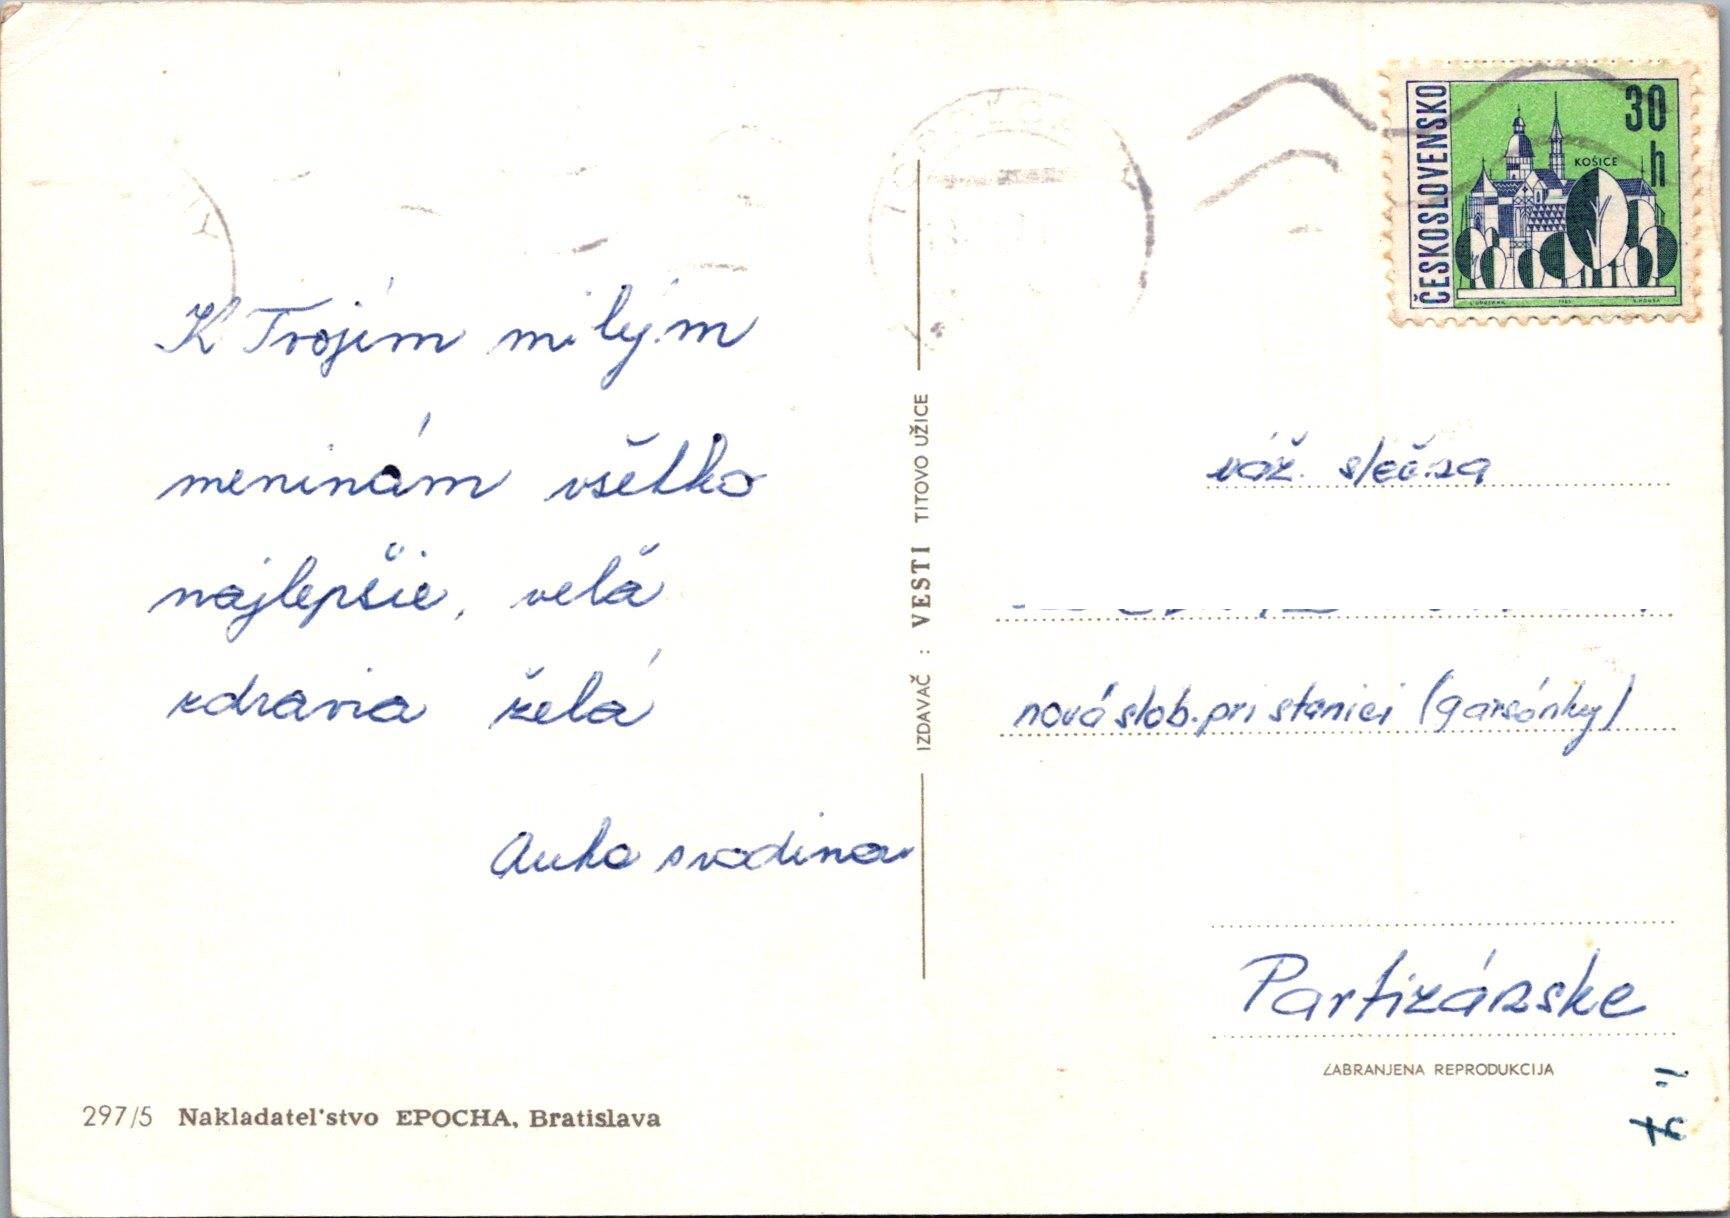 K Trojím milým
meninám všetko
najlepšie, velá
zdravia želá
Anka svadina
297/5 Nakladatel'stvo EPOCHA, Bratislava
IZDAVAČ : VESTI TITOVO UŽICE
ČESKOSLOVENSKO
30
h
KOŠICE
váž. slečna
nová slob. pri stanici (garsónky)
Partizánske
ZABRANJENA REPRODUKCIJA